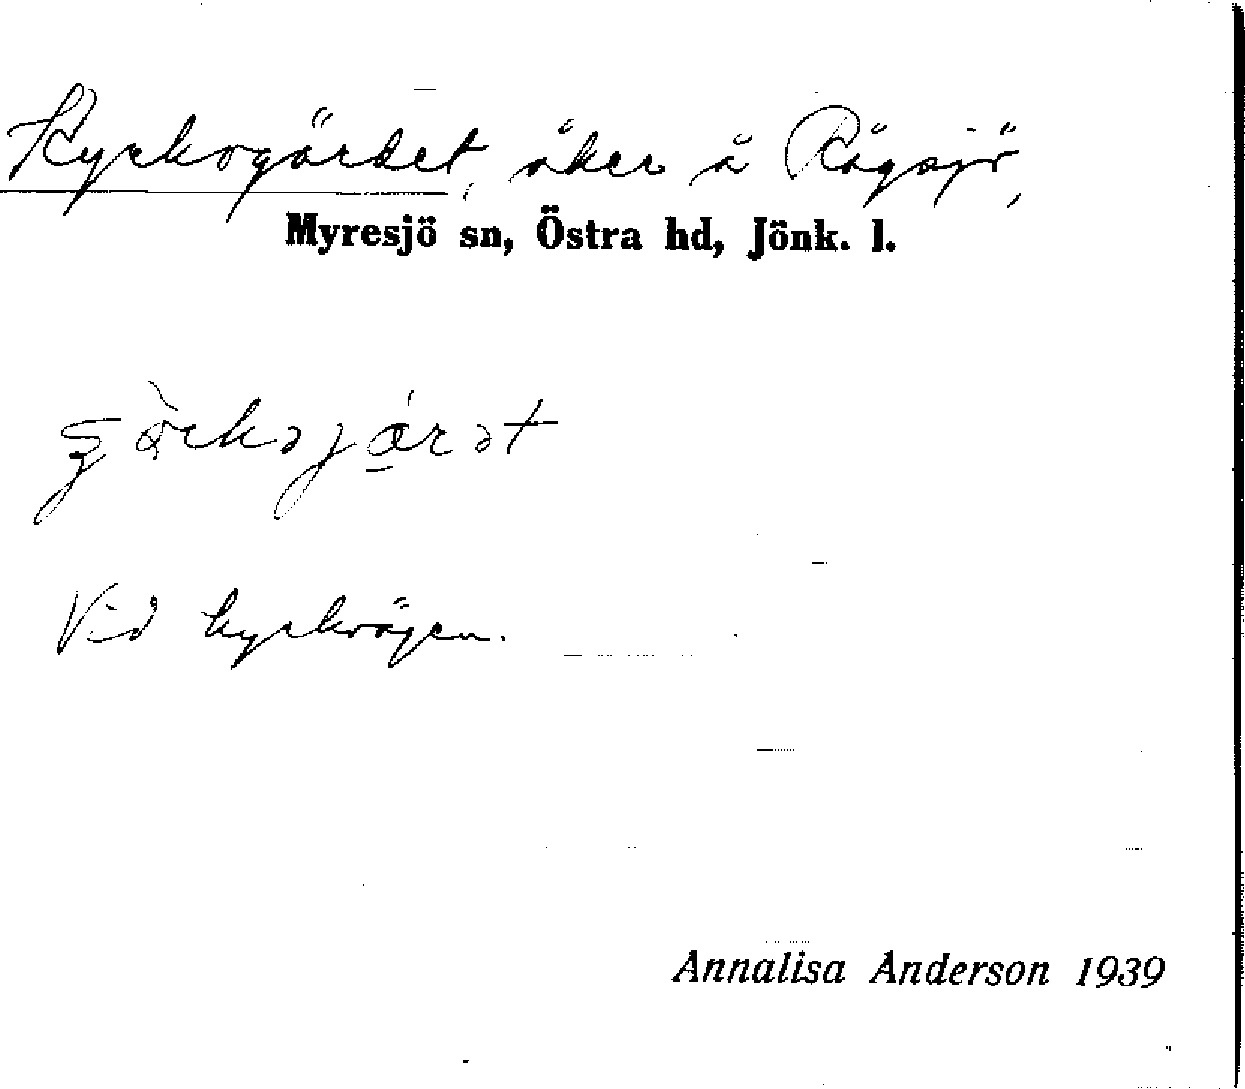 Kyrkogärdet, åker å Rågsjö,
Myresjö sn, Östra hd, Jönk. l.
Vid kyrkvägen.
Annalisa Anderson 1939